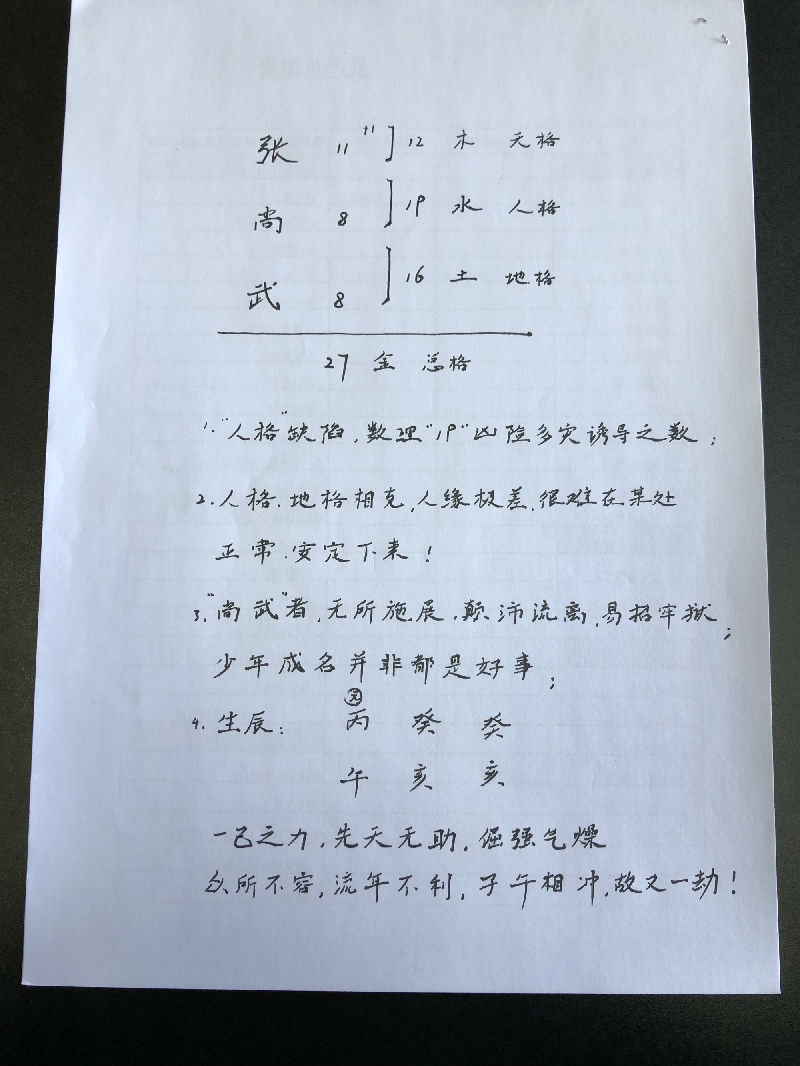 张 11 11 ] 12 木 天格
尚 8 ] 19 水 人格
武 8 ] 16 土 地格
27 金 总格
1. "人格"缺陷,数理"19"凶险多灾诱导之数;
2. 人格、地格相克,人缘极差、很难在某处
正常、安定下来!
3. "尚武"者,无所施展、颠沛流离、易招牢狱;
少年成名并非都是好事;
4. 生辰: 丙 癸 癸
午 亥 亥
一己之力,先天无助,倔强气燥
众所不容,流年不利,子午相冲,故又一劫!